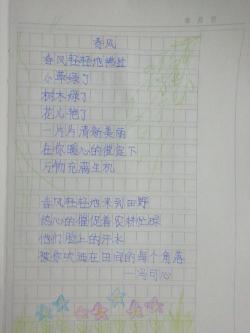 春风
春风轻轻地拂过
小草绿了
树木绿了
花儿艳了
一片片清新美丽
在你暖心的催促下
万物充满生机
春风轻轻地来到田野
热心的催促着农村
他们脸上的汗水
被你吹洒在田间的每个角落
——冯可心